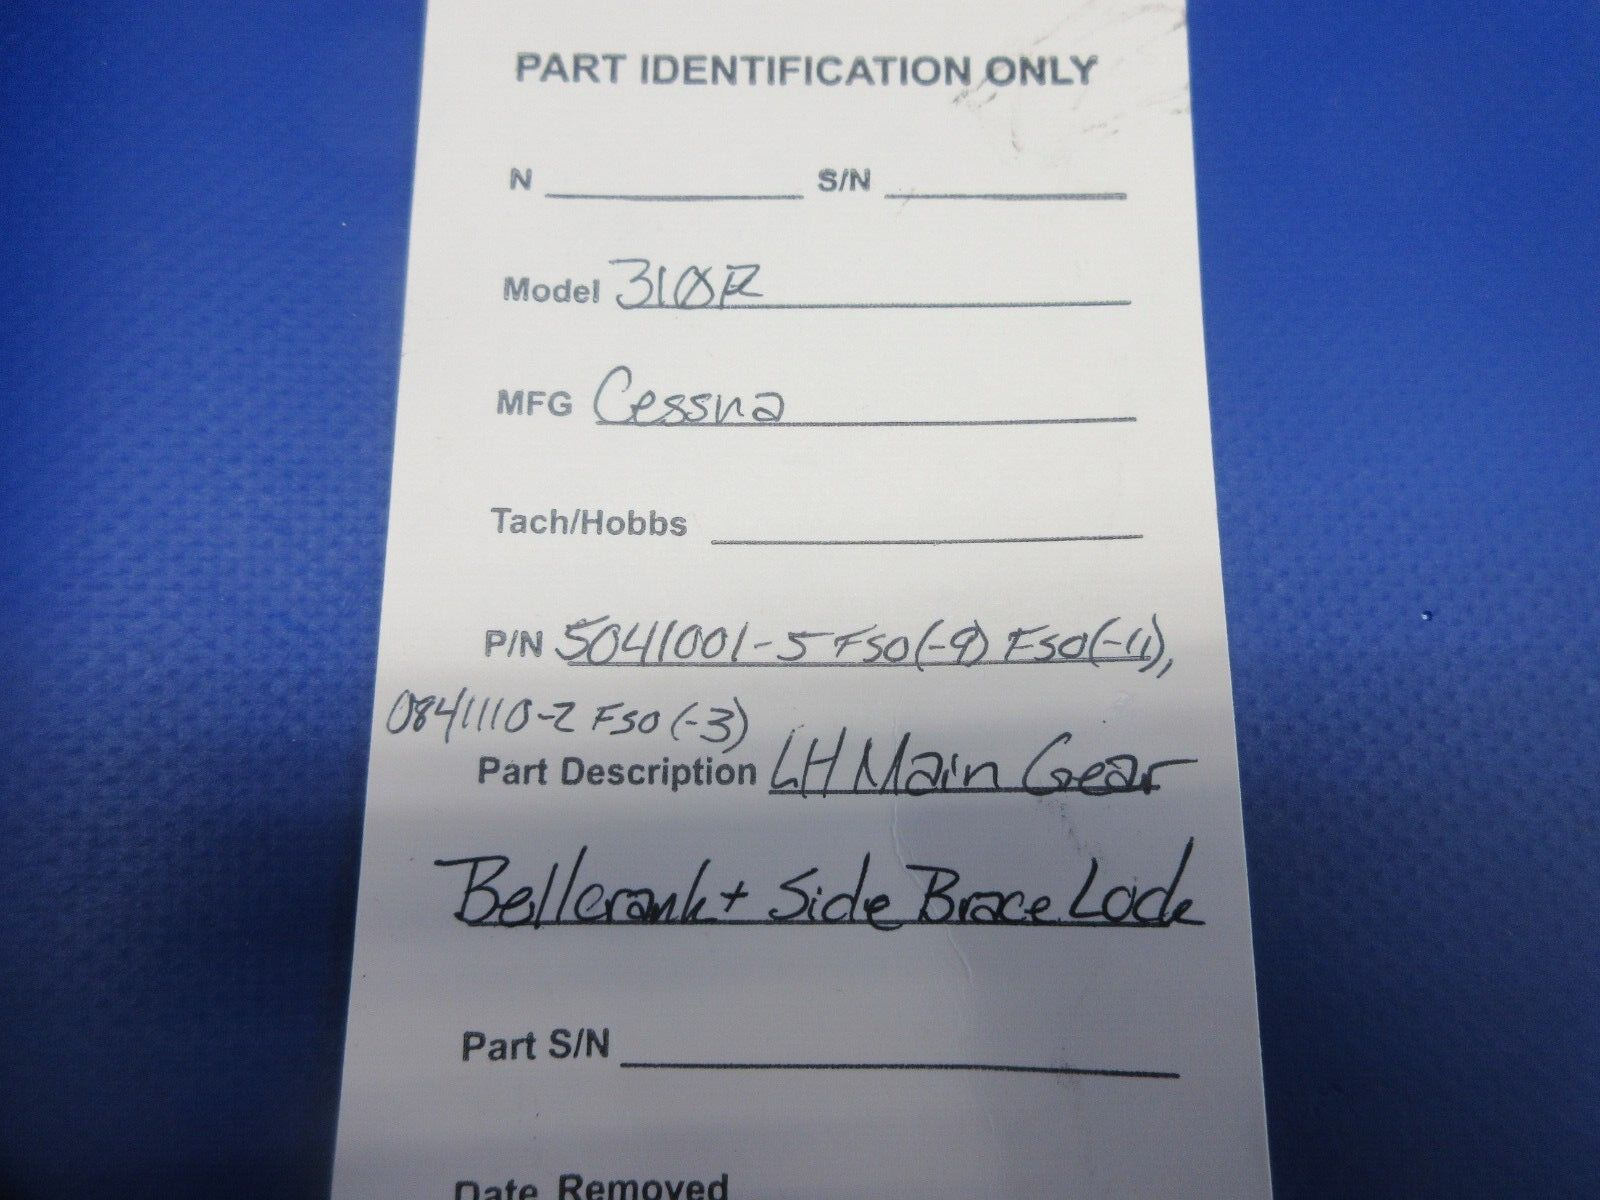 PART IDENTIFICATION ONLY
N S/N
Model 310R
MFG Cessna
Tach/Hobbs
P/N 5041001-5 FSO(-9) FSO(-11),
0841110-2 FSO (-3)
Part Description LH Main Gear
Bellcrank + Side Brace Lock
Part S/N
Date Removed